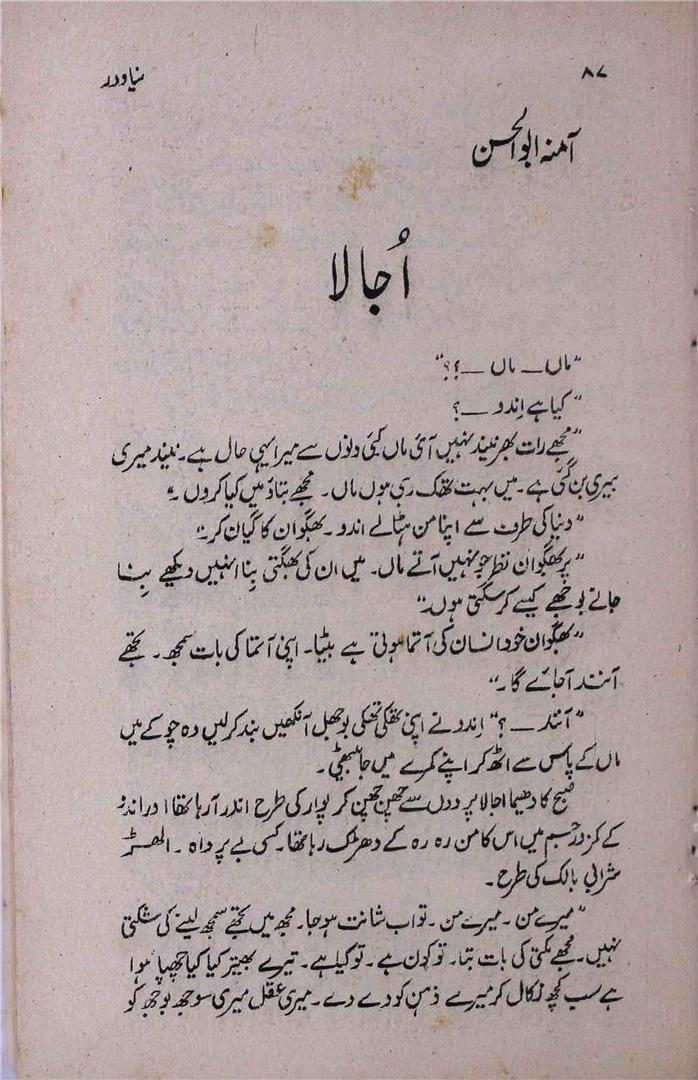 ۸۷
نیا ودر
آمنہ ابوالحسن
اُجالا
"ماں ـــ ماں ـــ ؟؟"
"کیا ہے اِندو ـــ ؟
"مجھے رات بھر نیند نہیں آئی ماں کئی دنوں سے میرا یہی حال ہے۔ نیند میری
بیری بن گئی ہے۔ میں بہت تھک رہی ہوں ماں۔ مجھے بتاؤ میں کیا کروں۔"
"دنیا کی طرف سے اپنا من ہٹالے اندو۔ بھگوان کا گیان کر۔"
"پر بھگوان نظر جو نہیں آتے ماں۔ میں ان کی بھگتی بِنا انہیں دیکھے بِنا
جانے بوجھے کیسے کرسکتی ہوں۔"
"بھگوان خود انسان کی آتما ہوتی ہے بیٹا۔ اپنی آتما کی بات سمجھ۔ تجھے
آنند آجائے گا۔"
"آنند ـــ ؟" اِندو نے اپنی تھکی تھکی بوجھل آنکھیں بند کرلیں وہ چوکے میں
ماں کے پاس سے اٹھ کر اپنے کمرے میں جابیٹھی۔
صبح کا دھیما اجالا پردوں سے چھن چھن کر پھوار کی طرح اندر آرہا تھا اور اندو
کے کمزور جسم میں اس کا من رہ رہ کے دھڑک رہا تھا۔ کسی بے پرواہ۔ الھڑ
شرابی بالک کی طرح۔
"میرے من۔ میرے من۔ تو اب شانت ہوجا۔ مجھ میں تجھے سمجھ لینے کی شکتی
نہیں۔ مجھے مکتی کی بات بتا۔ تو کون ہے۔ تو کیا ہے۔ تیرے بھیتر کیا کیا چھپا ہوا
ہے سب کچھ نکال کر میرے ذہن کو دے دے۔ میری عقل میری سوجھ بوجھ کو